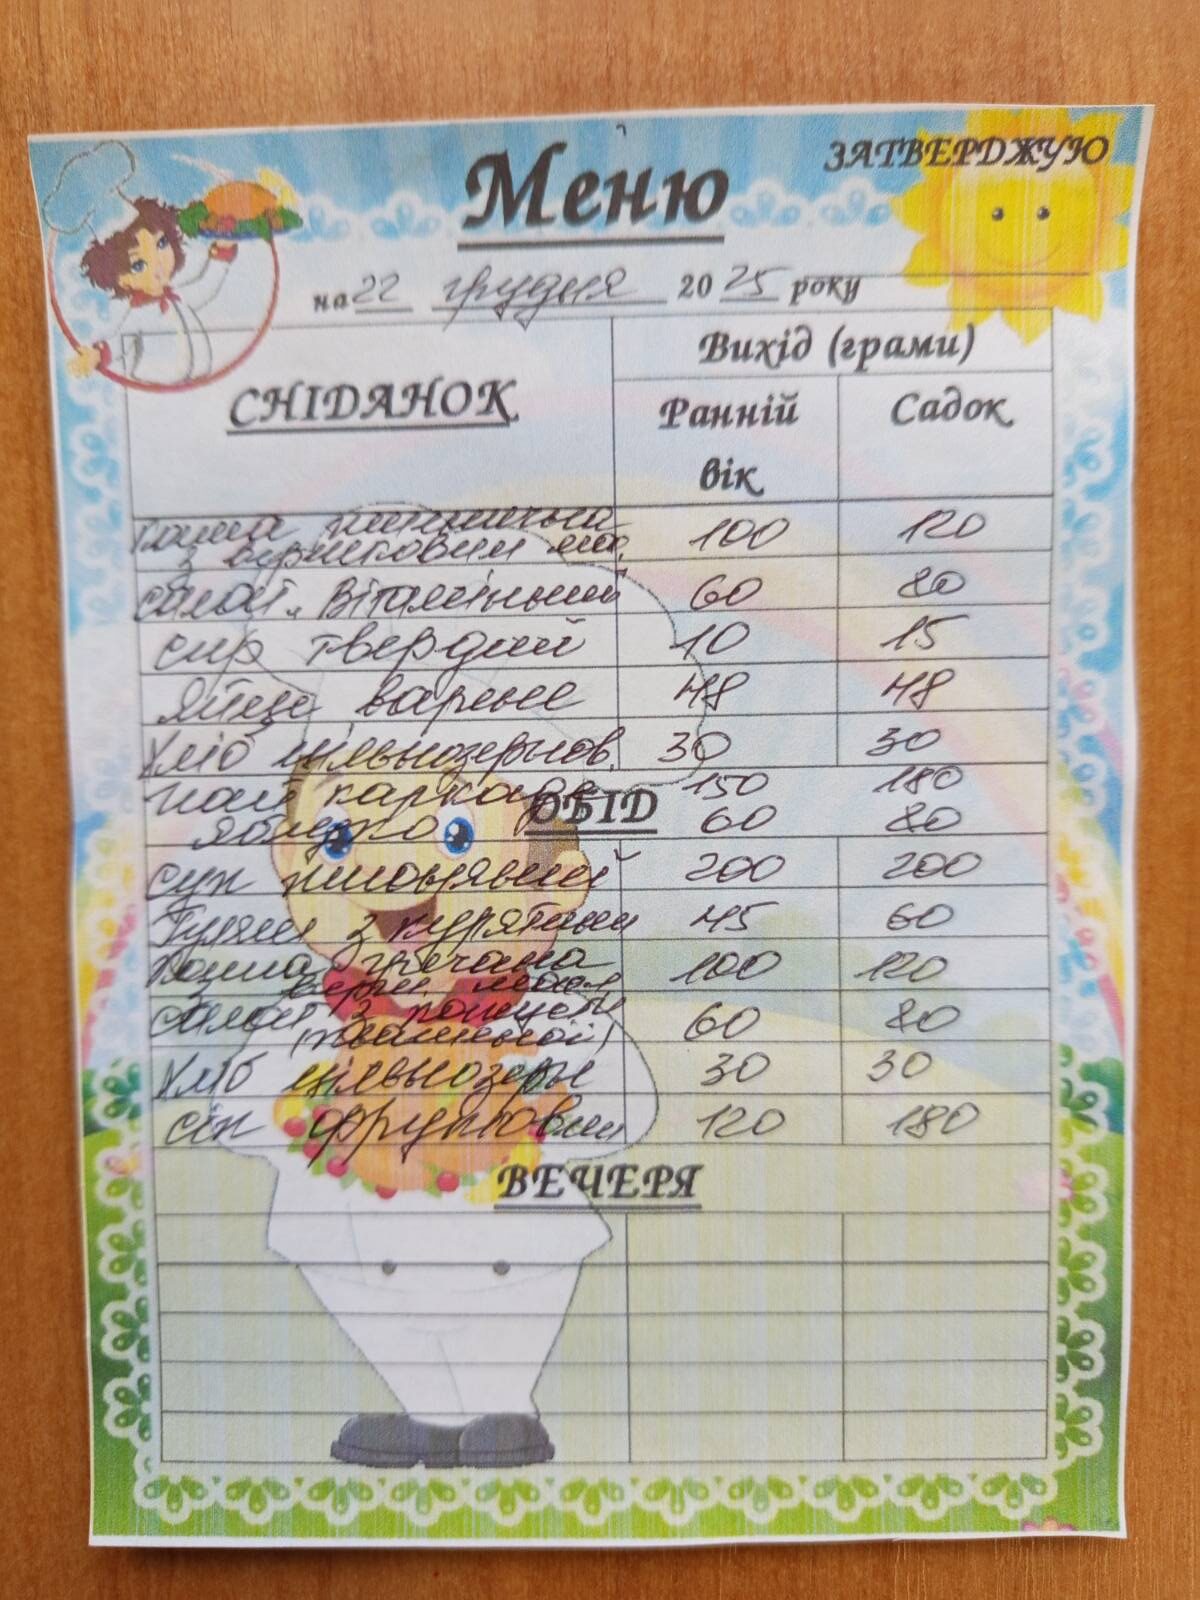 ЗАТВЕРДЖУЮ
Меню
на 22 грудня 2025 року
СНІДАНОК Вихід (грами)
Ранній вік Садок
Каша пшенична 100 120
з вершковим мас.
салат "Вітамінний" 60 80
сир твердий 10 15
яйце варене 48 48
Хліб цільнозернов. 30 30
чай каркаде 150 180
ОБІД
яблуко 60 80
суп 200 200
Гуляш з курятини 45 60
Каша гречана 100 120
з верш. масл.
салат з капусти 60 80
(квашеної)
Хліб цільнозерн 30 30
сік фруктовий 120 180
ВЕЧЕРЯ